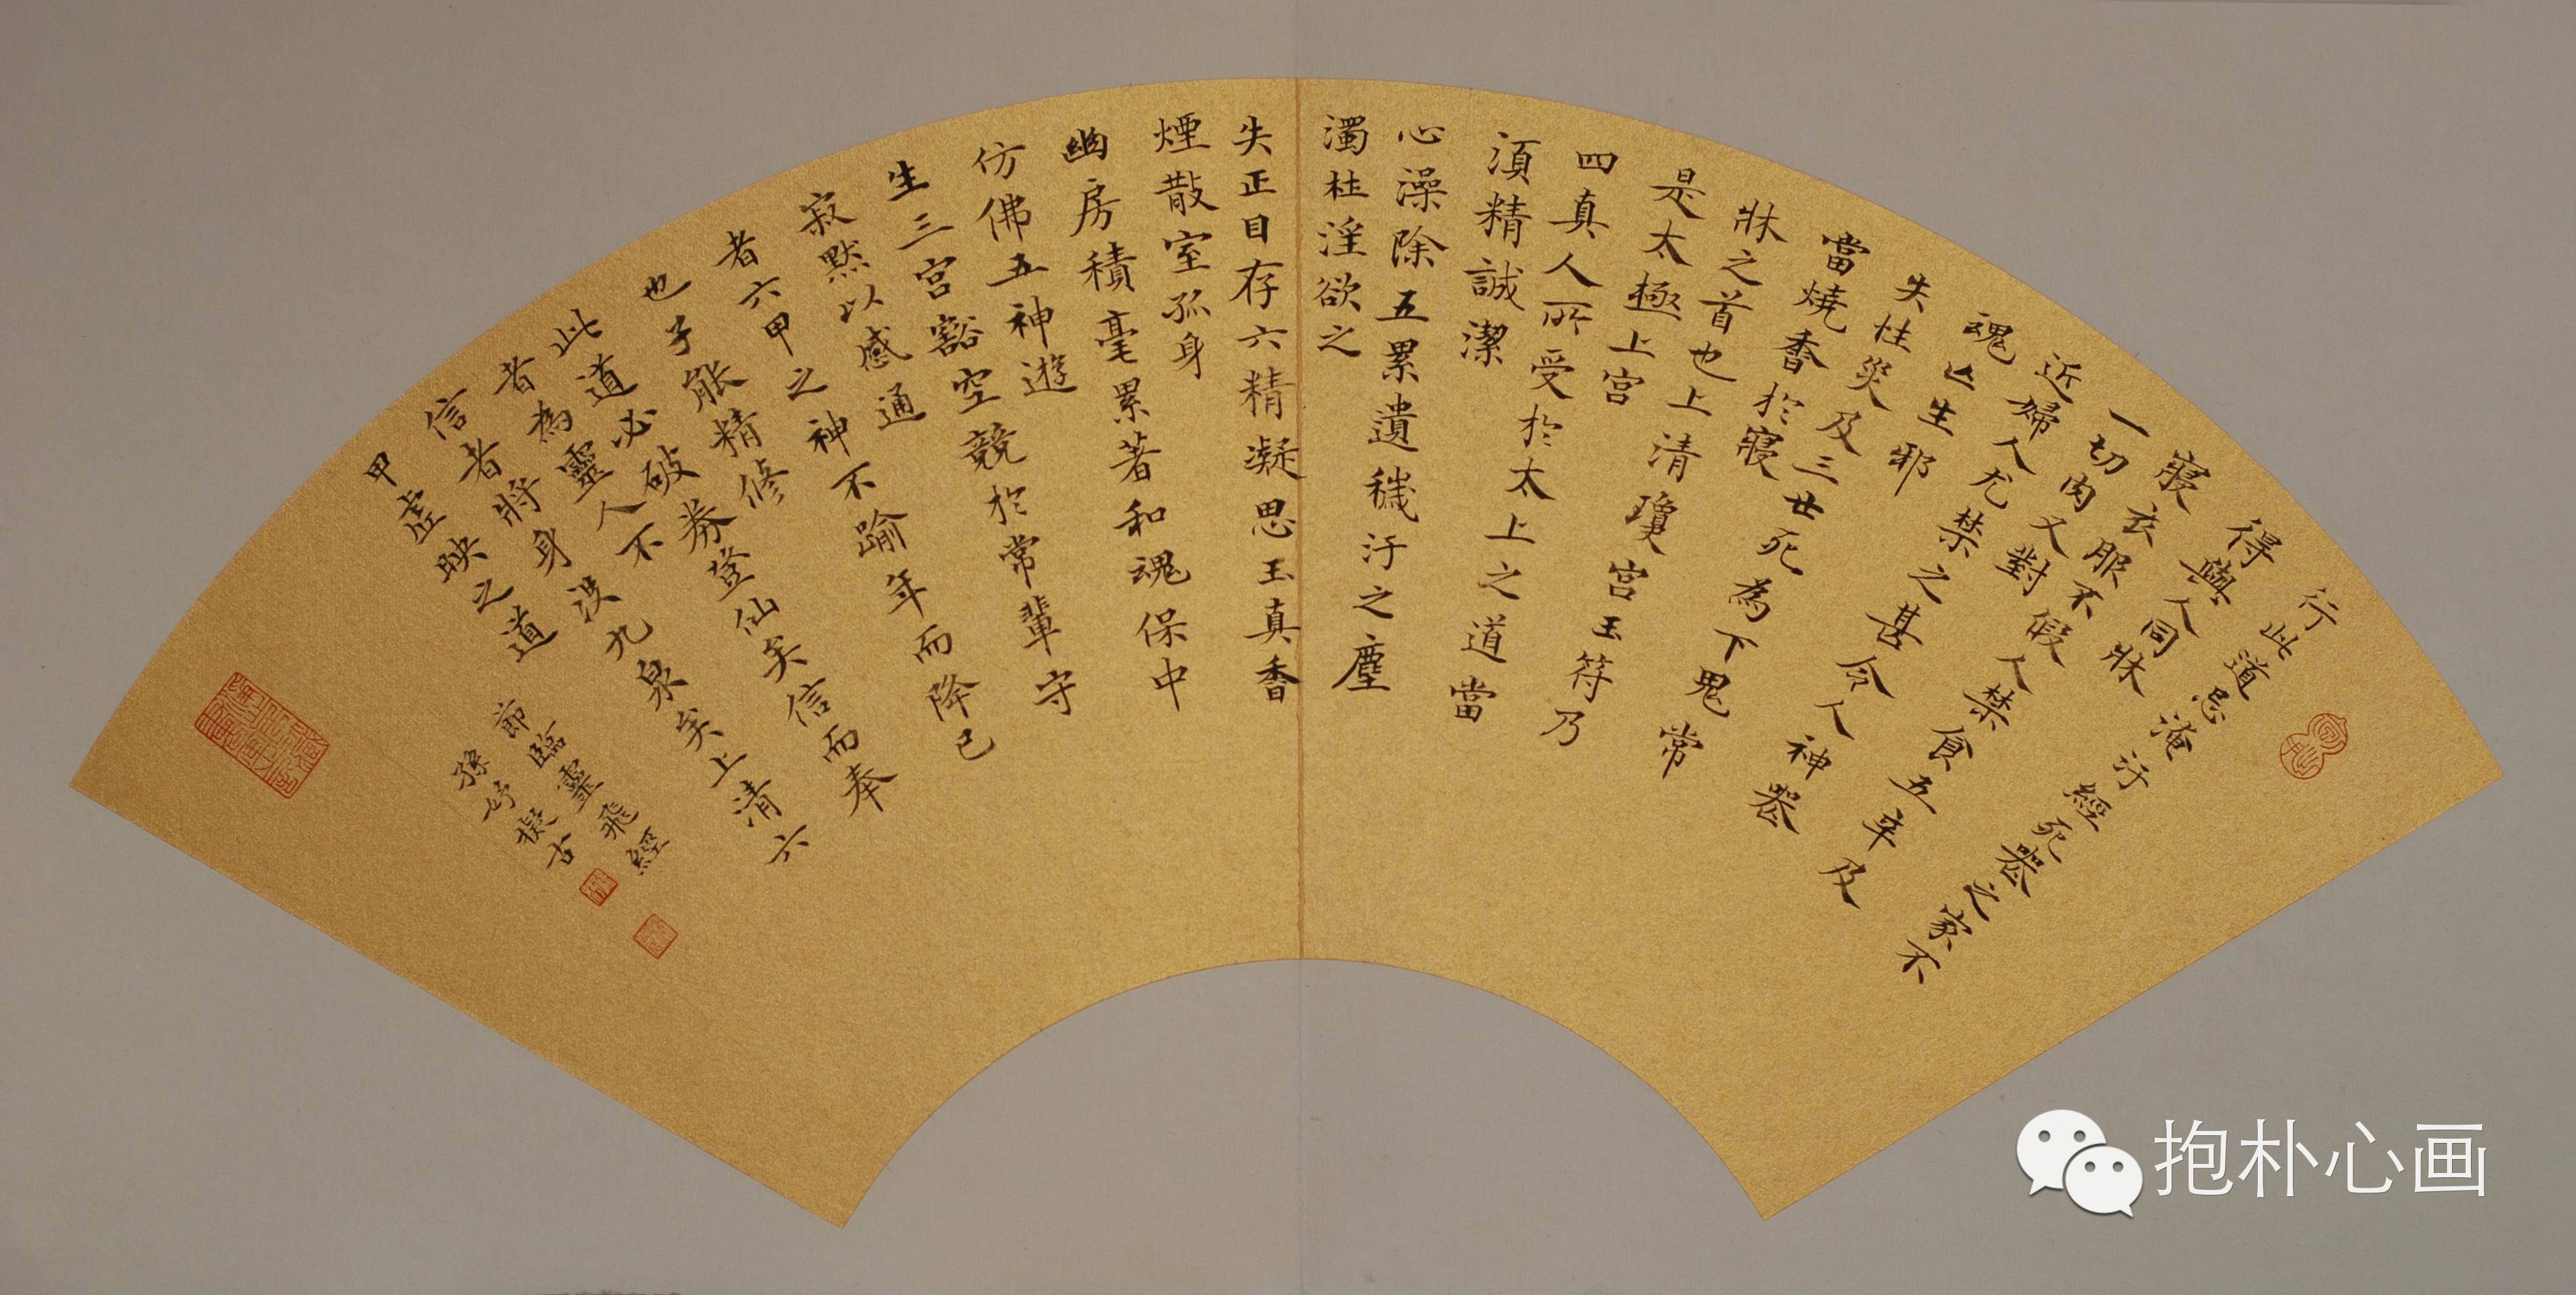 行此道忌淹汙經死喪之家不
得與人同牀
寢衣服不假人禁食五辛及
一切肉又對
近婦人尤禁之甚令人神喪
魂亡生邪
失性災及三世死為下鬼常
當燒香於寢
牀之首也上清瓊宮玉符乃
是太極上宮
四真人所受於太上之道當
須精誠潔
心澡除五累遺穢汙之塵
濁杜淫欲之
失正目存六精凝思玉真香
煙散室孤身
幽房積毫累著和魂保中
仿佛五神遊
生三宮豁空競於常輩守
寂默以感通
者六甲之神不踰年而降己
也子能精修
此道必破券登仙矣信而奉
者為靈人不
信者將身沒九泉矣上清六
甲虛映之道
節臨靈飛經
孫婷擬古
抱朴心画